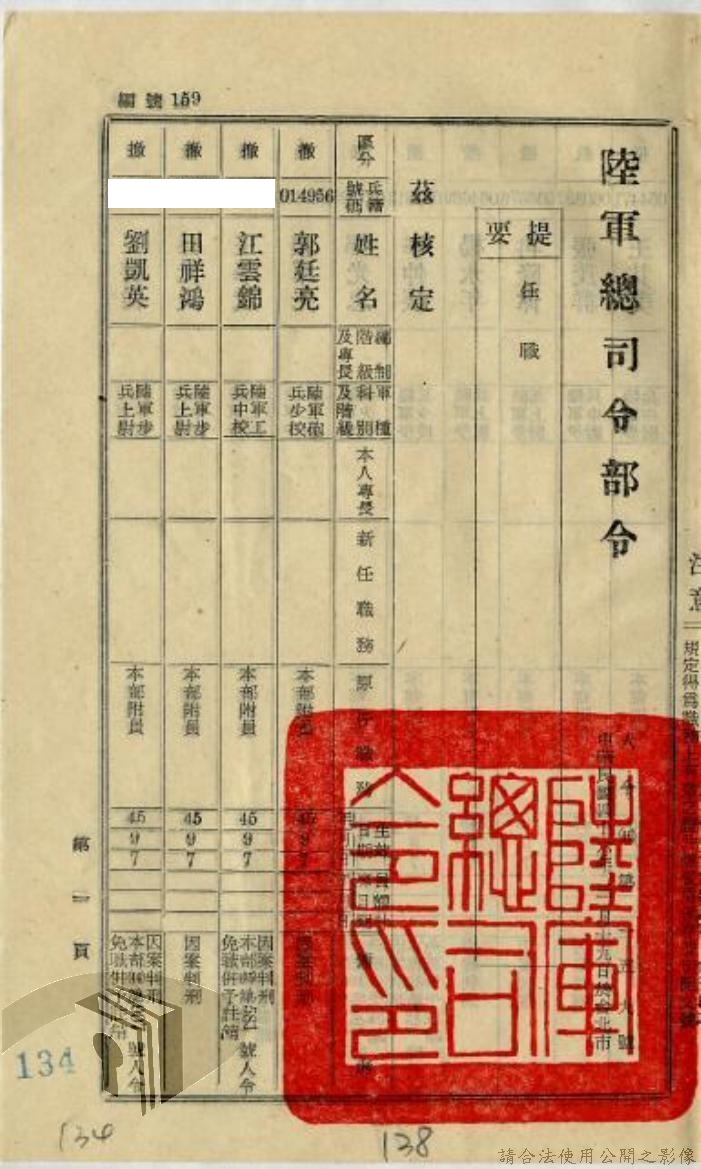 編號159
陸軍總司令部令
提要
任職
茲核定
區分
兵籍號碼
姓名
編制階級及專長
軍種科別及階級
本人專長
新任職務
原任職務
撤
014956
郭廷亮
陸軍砲兵少校
本部附員
45
9
7
因案判刑
撤
江雲錦
陸軍工兵中校
本部附員
45
9
7
因案判刑
號人令
免職併予註銷
撤
田祥鴻
陸軍步兵上尉
本部附員
45
9
7
因案判刑
撤
劉凱英
陸軍步兵上尉
本部附員
45
9
7
因案判刑
號人令
第一頁
陸軍總司令印
注意
134
134
138
請合法使用公開之影像